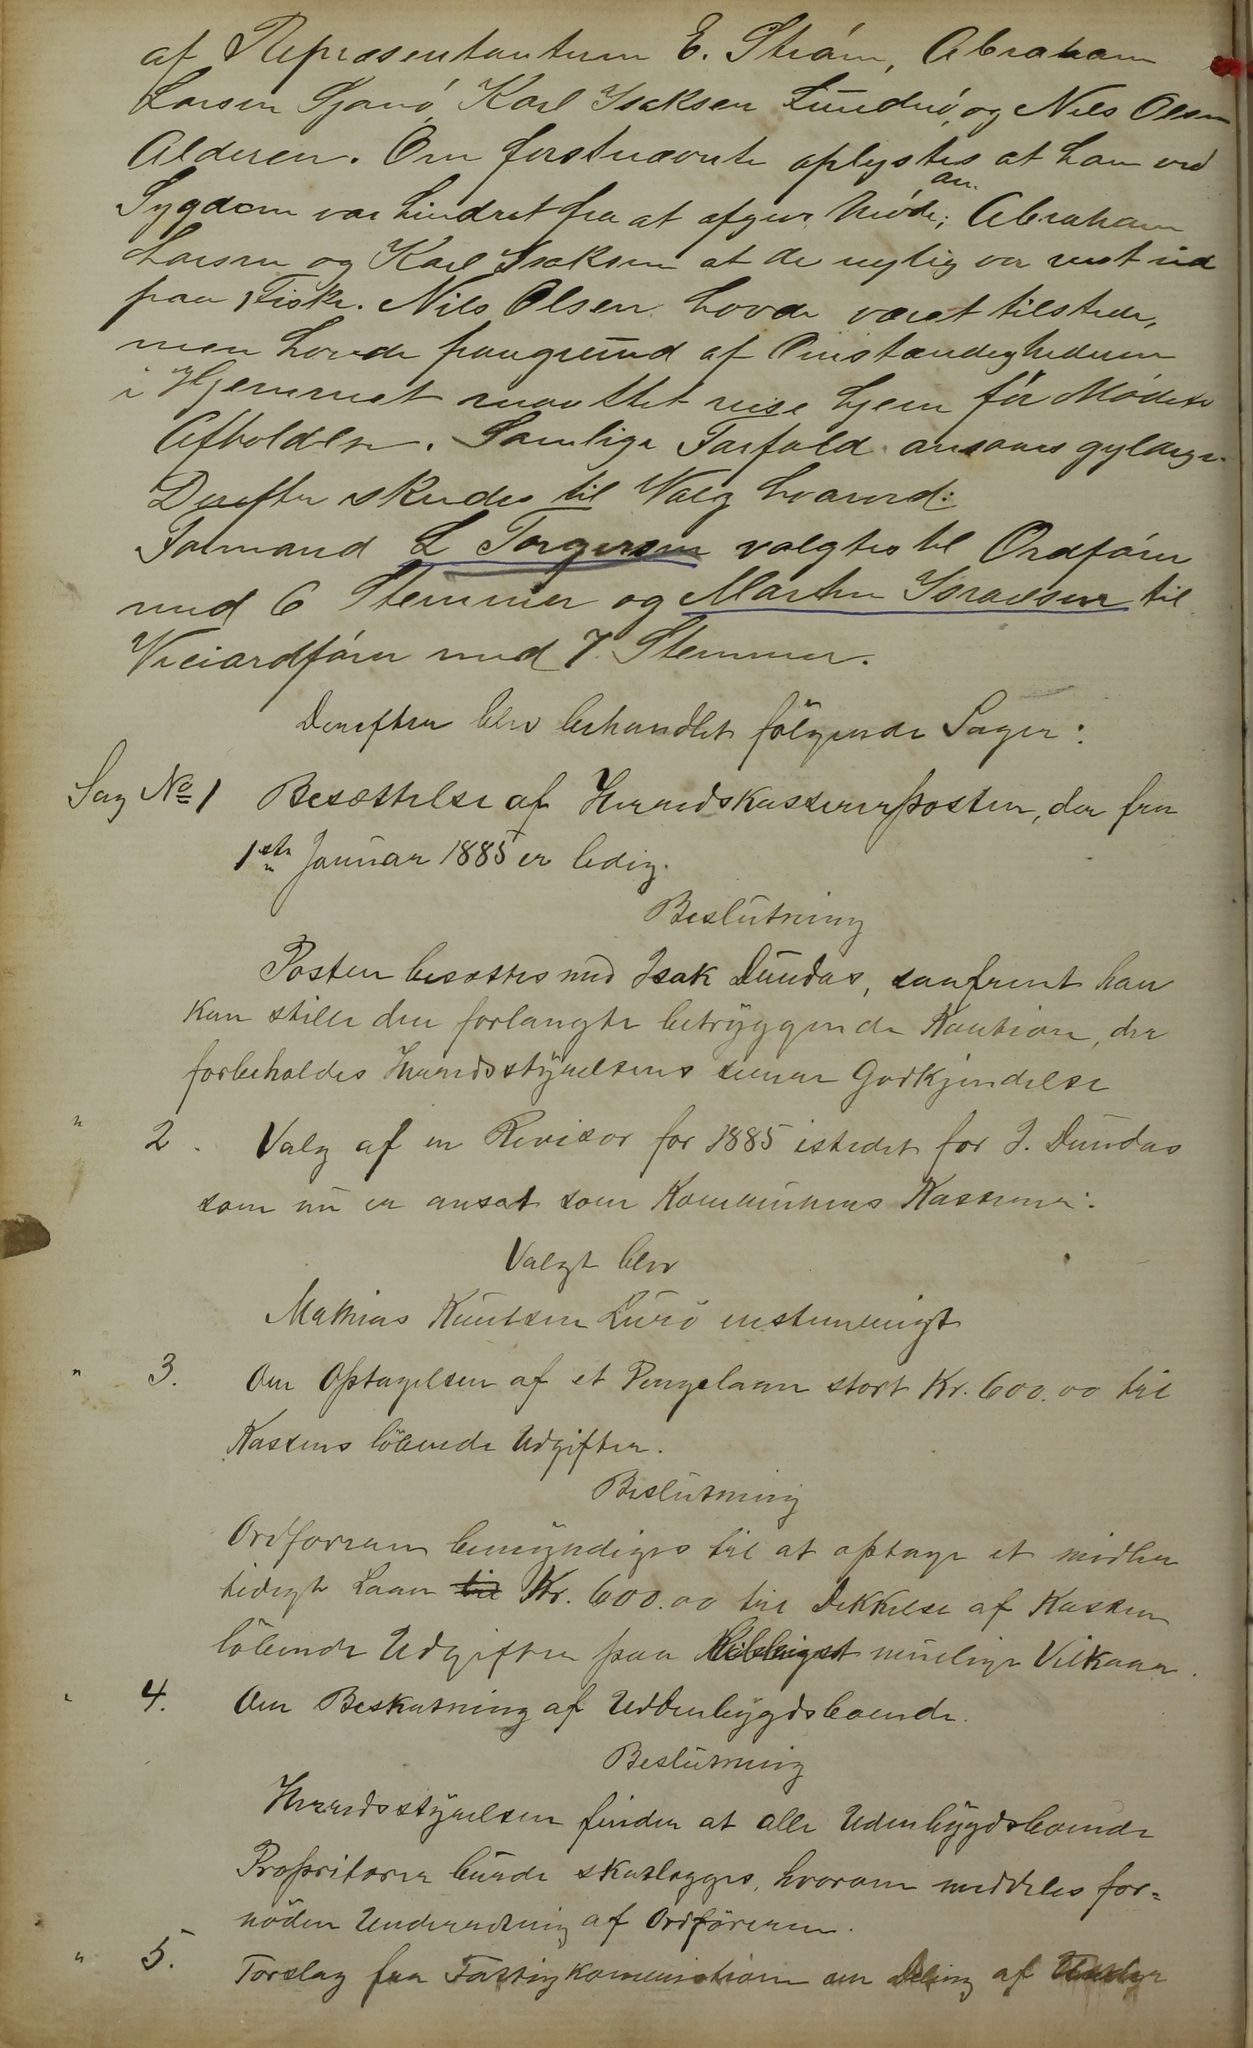 af Repræsentanterne E. Strøm, Abraham
Larsen Sjonø, Karl Isaksen Lundrö, og Nils Olsen
Alderen. Om førstnævnte oplystes at han ved
Sygdom var hindret fra at afgive Møde; Abraham
an.
Larsen og Karl Isaksen at de nylig var reist ud
paa Fiske. Nils Olsen havde været tilstede,
men havde paagrund af Omstændighederne
i Hjemmet maattet reise hjem för Mödets
Afholdelse. Samtlige Forfald ansaaes gyldige.
Derefter skredes til Valg hvorved:
Formand L Torgersen valgtes til Ordförer
med 6 Stemmer og Martin Israelsen til
Viceordförer med 7 Stemmer.
Derefter blev behandlet fölgende Sager:
Sag No 1 Besættelse af Herredskassererposten, der fra
1ste Januar 1885 er ledig.
Beslutning
Posten besættes med Isak Dundas, saafremt han
kan stille den forlangte betryggende Kaution, der
forbeholdes Herredsstyrelsens senere Godkjendelse
" 2. Valg af en Revisor for 1885 istedet for I. Dundas
som nu er ansat som Kommunens Kasserer:
Valgt blev
Mathias Knutsen Lurö enstemmigt
" 3. Om Optagelsen af et Pengelaan stort Kr. 600.00 til
Kassens löbende Udgifter.
Beslutning
Ordføreren bemyndiges til at optage et midler
tidigt Laan til Kr. 600.00 til Dekkelse af Kassens
löbende Udgifter paa billigst muelige Vilkaar.
" 4. Om Beskatning af Udenbygdsboende.
Beslutning
Herredsstyrelsen finder at alle Udenbygdsboende
Propritærer burde skatlægges, hvorom meddeles for=
nöden Underretning af Ordföreren.
" 5. Forslag fra Fattigkommistionen om Deling af